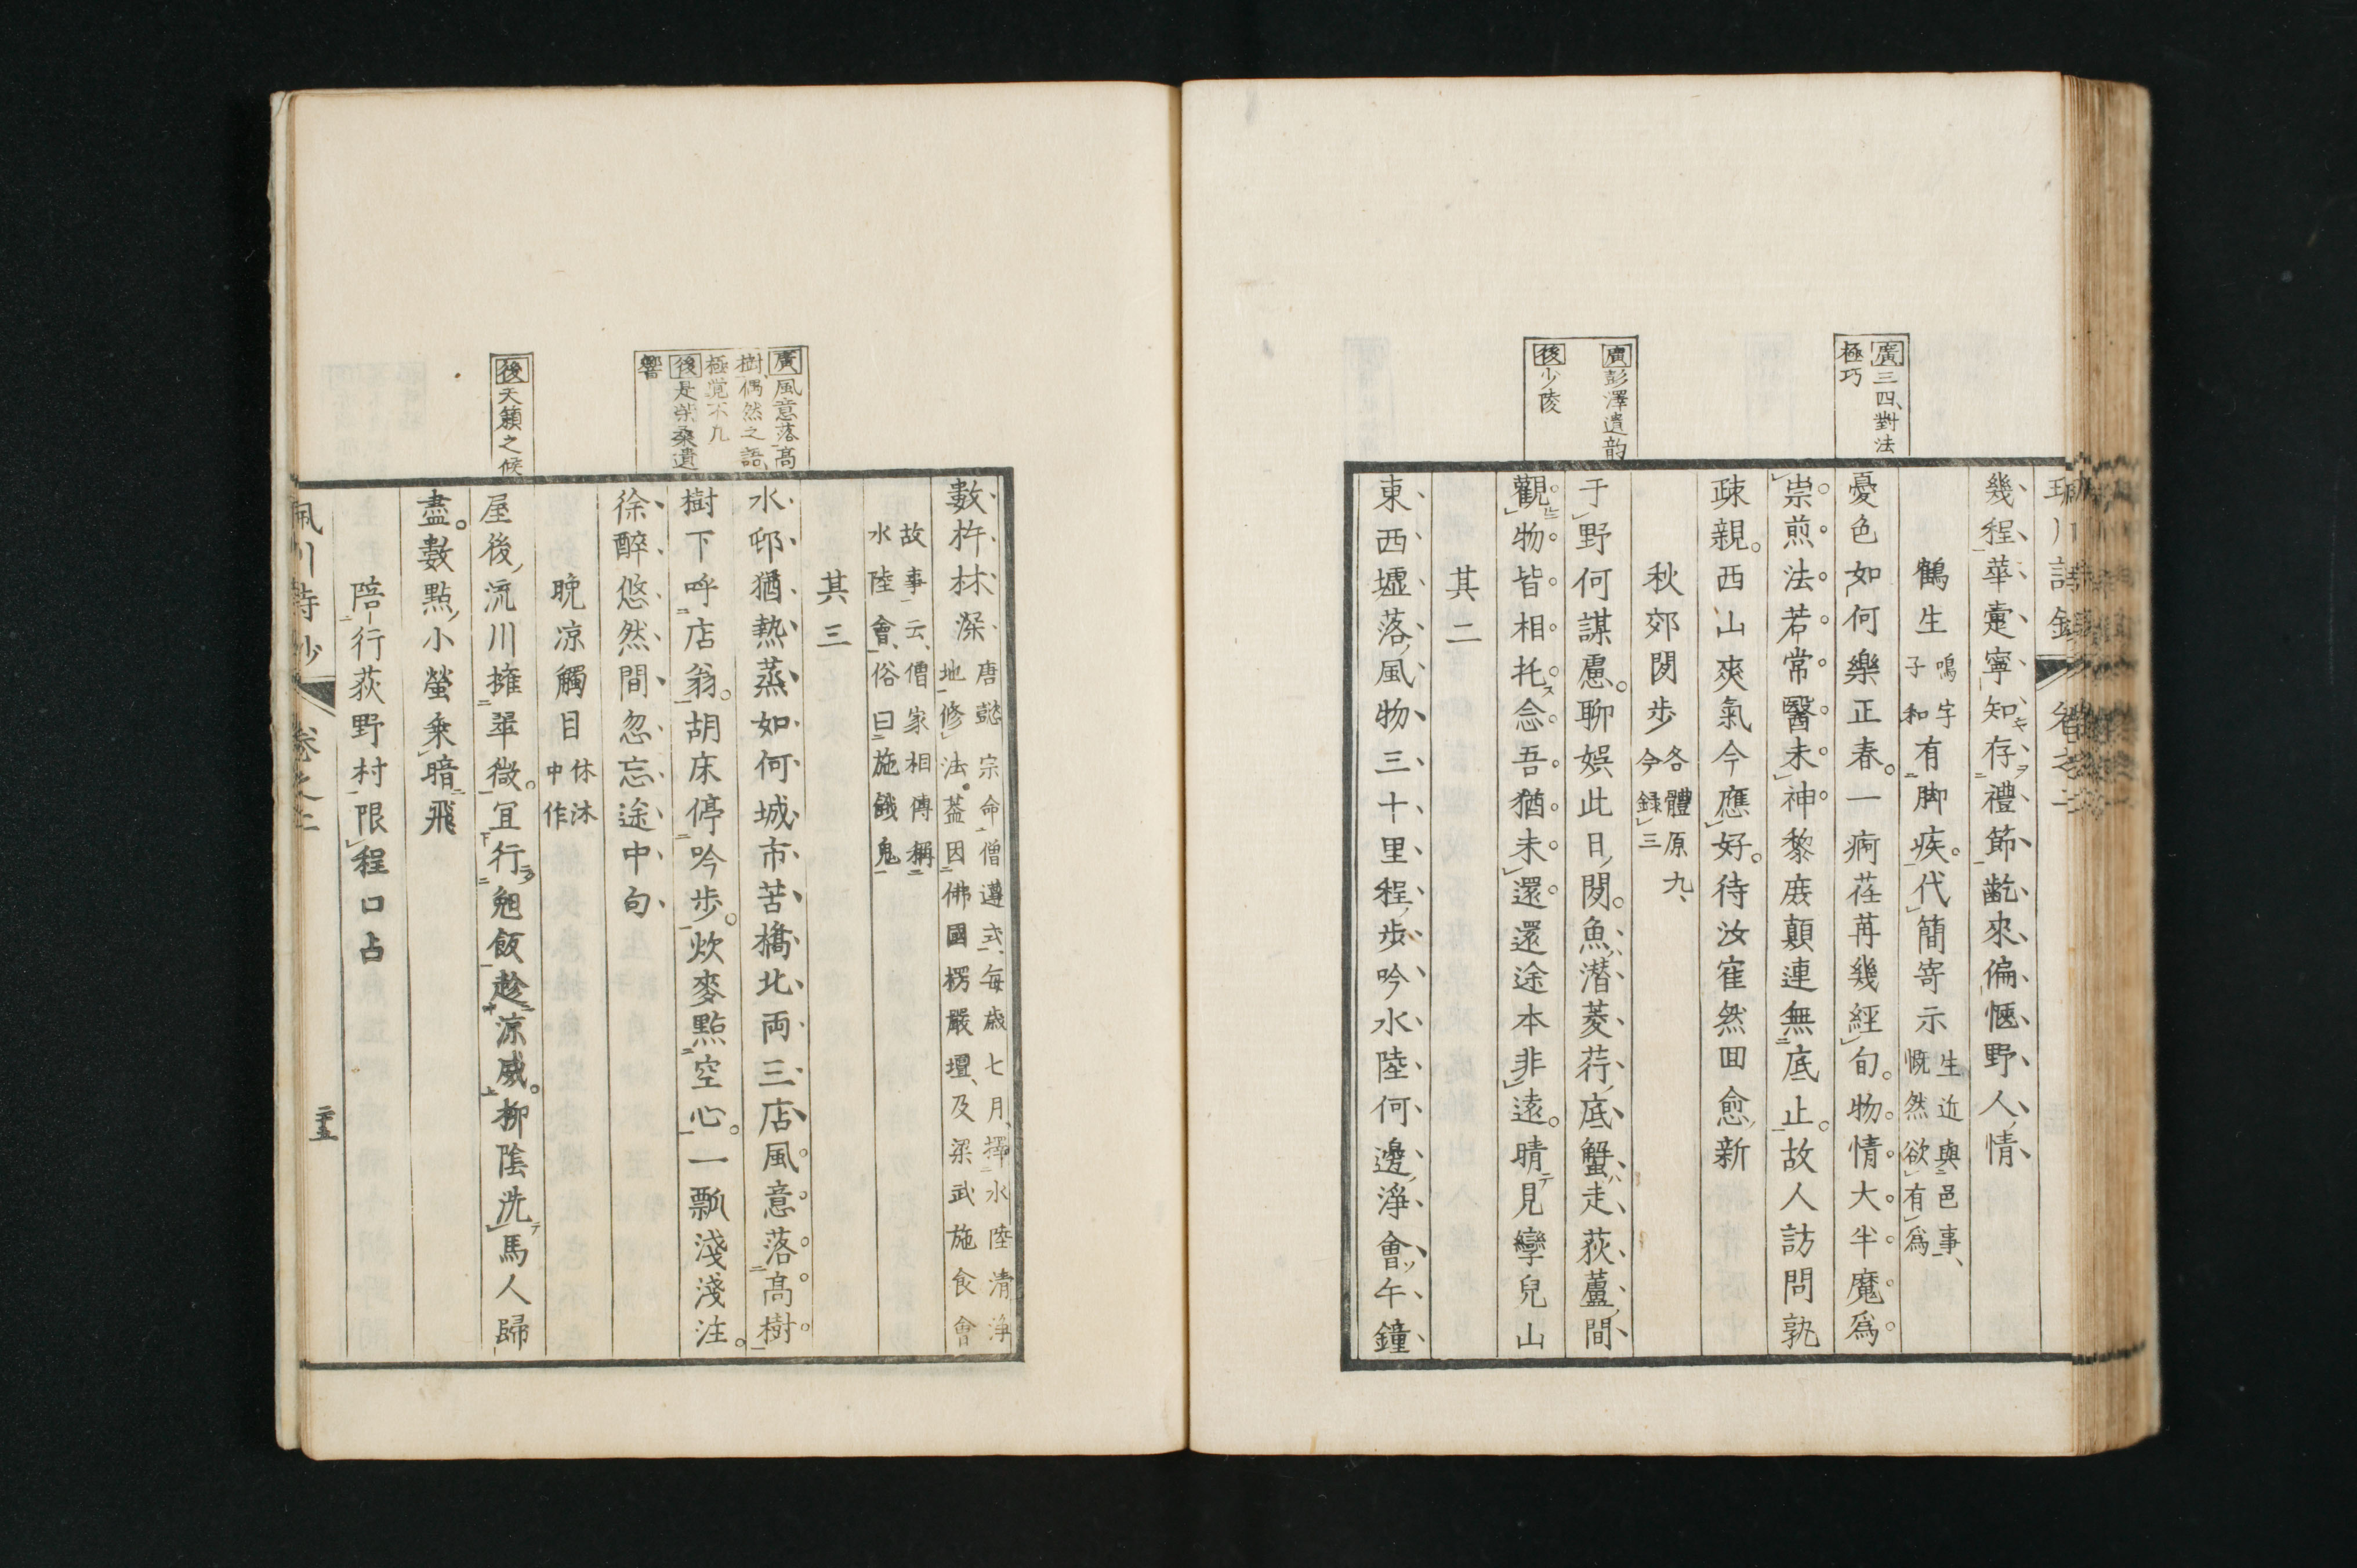 廣三四、對法
極巧
廣彭澤遺韵
後少陵
幾程、華臺寧知存禮節、齔來偏愜野人情
鶴生鳴字子和有脚疾。代簡寄示生近與邑事、慨然欲有爲
憂色如何樂正春。一痾荏苒幾經旬。物情大半魔爲
祟。煎法若常醫未神。黎庶顛連無底止。故人訪問孰
疎親。西山爽氣今應好。待汝寉然囬愈、新
秋郊閒步各體原九、今録三
于野何謀慮。聊娯此日閒。魚潛菱荇底蟹走荻蘆間
觀物皆相托。念吾猶未還。還途本非遠。晴見孿兒山
其二
東西墟落風物三十里程步吟水陸何邊淨會午鐘
廣風意落高
樹、偶然之語、
極覚不凡
後是柴桑遺
響
後天籟之候
數杵林深唐懿宗命僧遵式、毎歳七月、擇水陸清淨地修法。葢因佛國楞嚴壇、及梁武施食會
故事云、僧家相傳稱水陸會、俗曰施餓鬼
其三
水邨猶熱蒸如何城市苦橋北両三店風意落高樹
樹下呼店翁。胡床停吟步。炊麥點空心。一瓢淺淺注。
徐醉悠然間忽忘途中句
晩凉觸目休沐中作
屋後流川擁翠微。宜行匏飯趁凉威。柳陰洗馬人歸
盡。數點小螢乗暗飛
陪行荻野村限程口占
卷之二
二十五